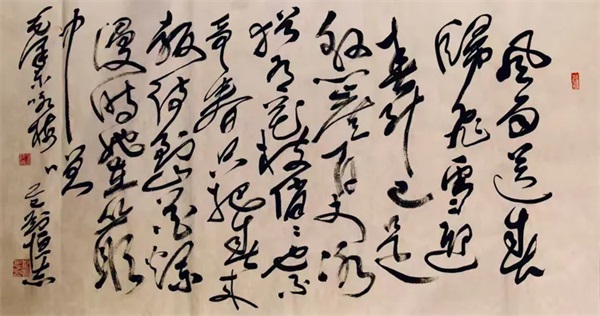 風雨送春
歸飛雪迎
春到已是
懸崖百丈冰
猶有花枝俏俏也不
爭春只把春來
報待到山花爛
漫時她在叢
中笑
毛澤東咏梅